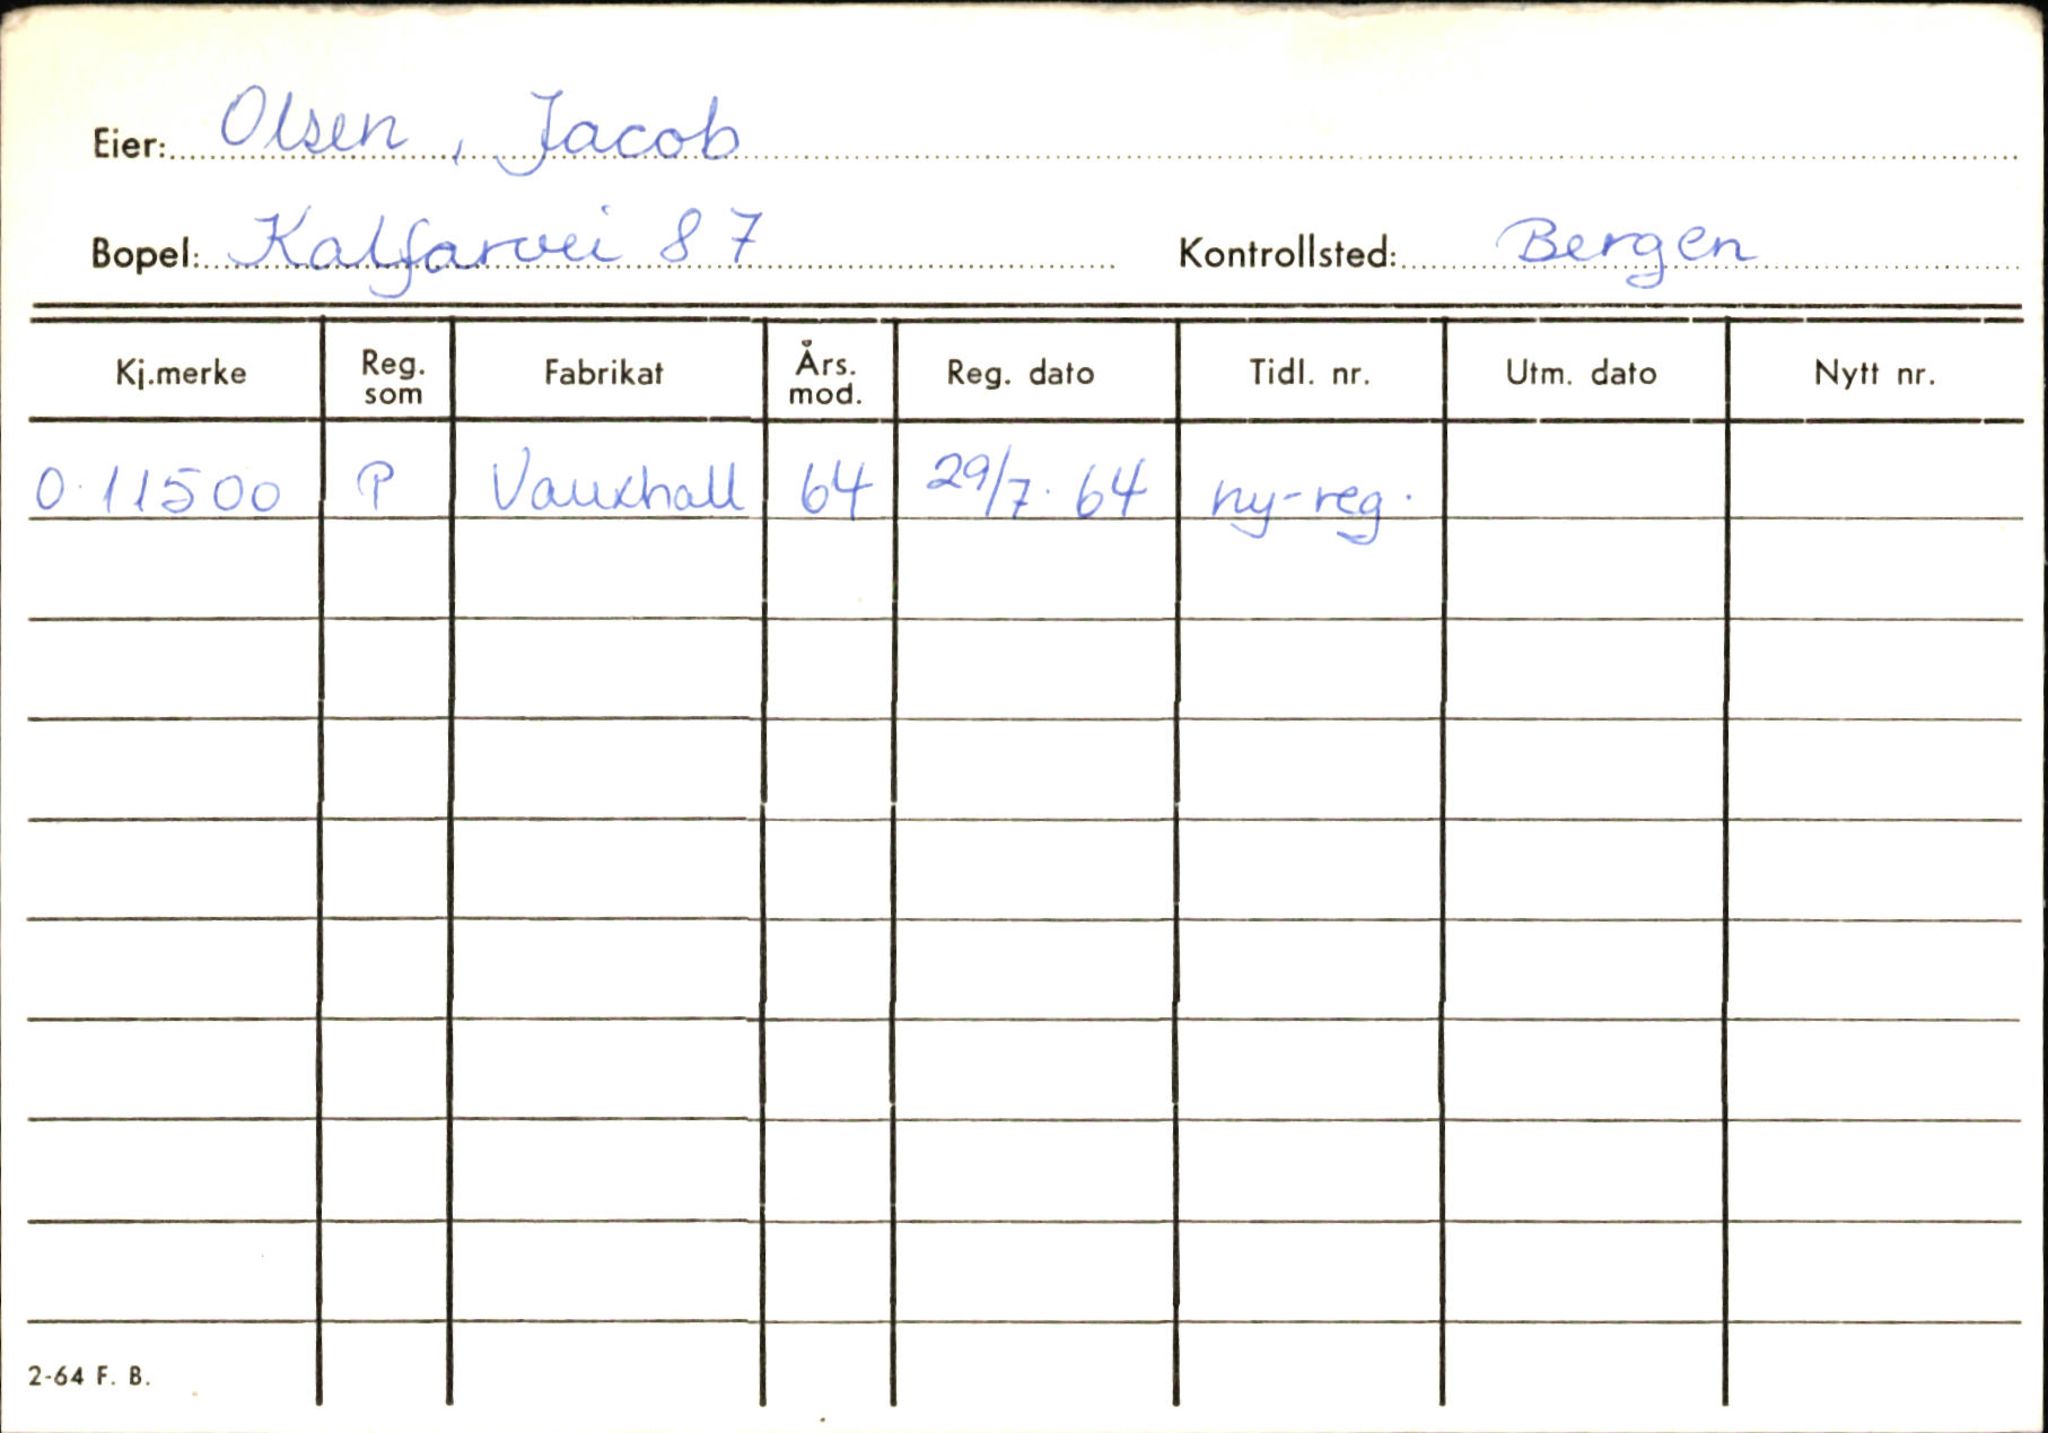 Eier: Olsen, Jacob
Bopel: Kalfarvei 87 Kontrollsted: Bergen
Kj.merke Reg. som Fabrikat Års. mod. Reg. dato Tidl. nr. Utm. dato Nytt nr.
O-11500 P Vauxhall 64 29/7-64 ny-reg.
2-64 F. B.